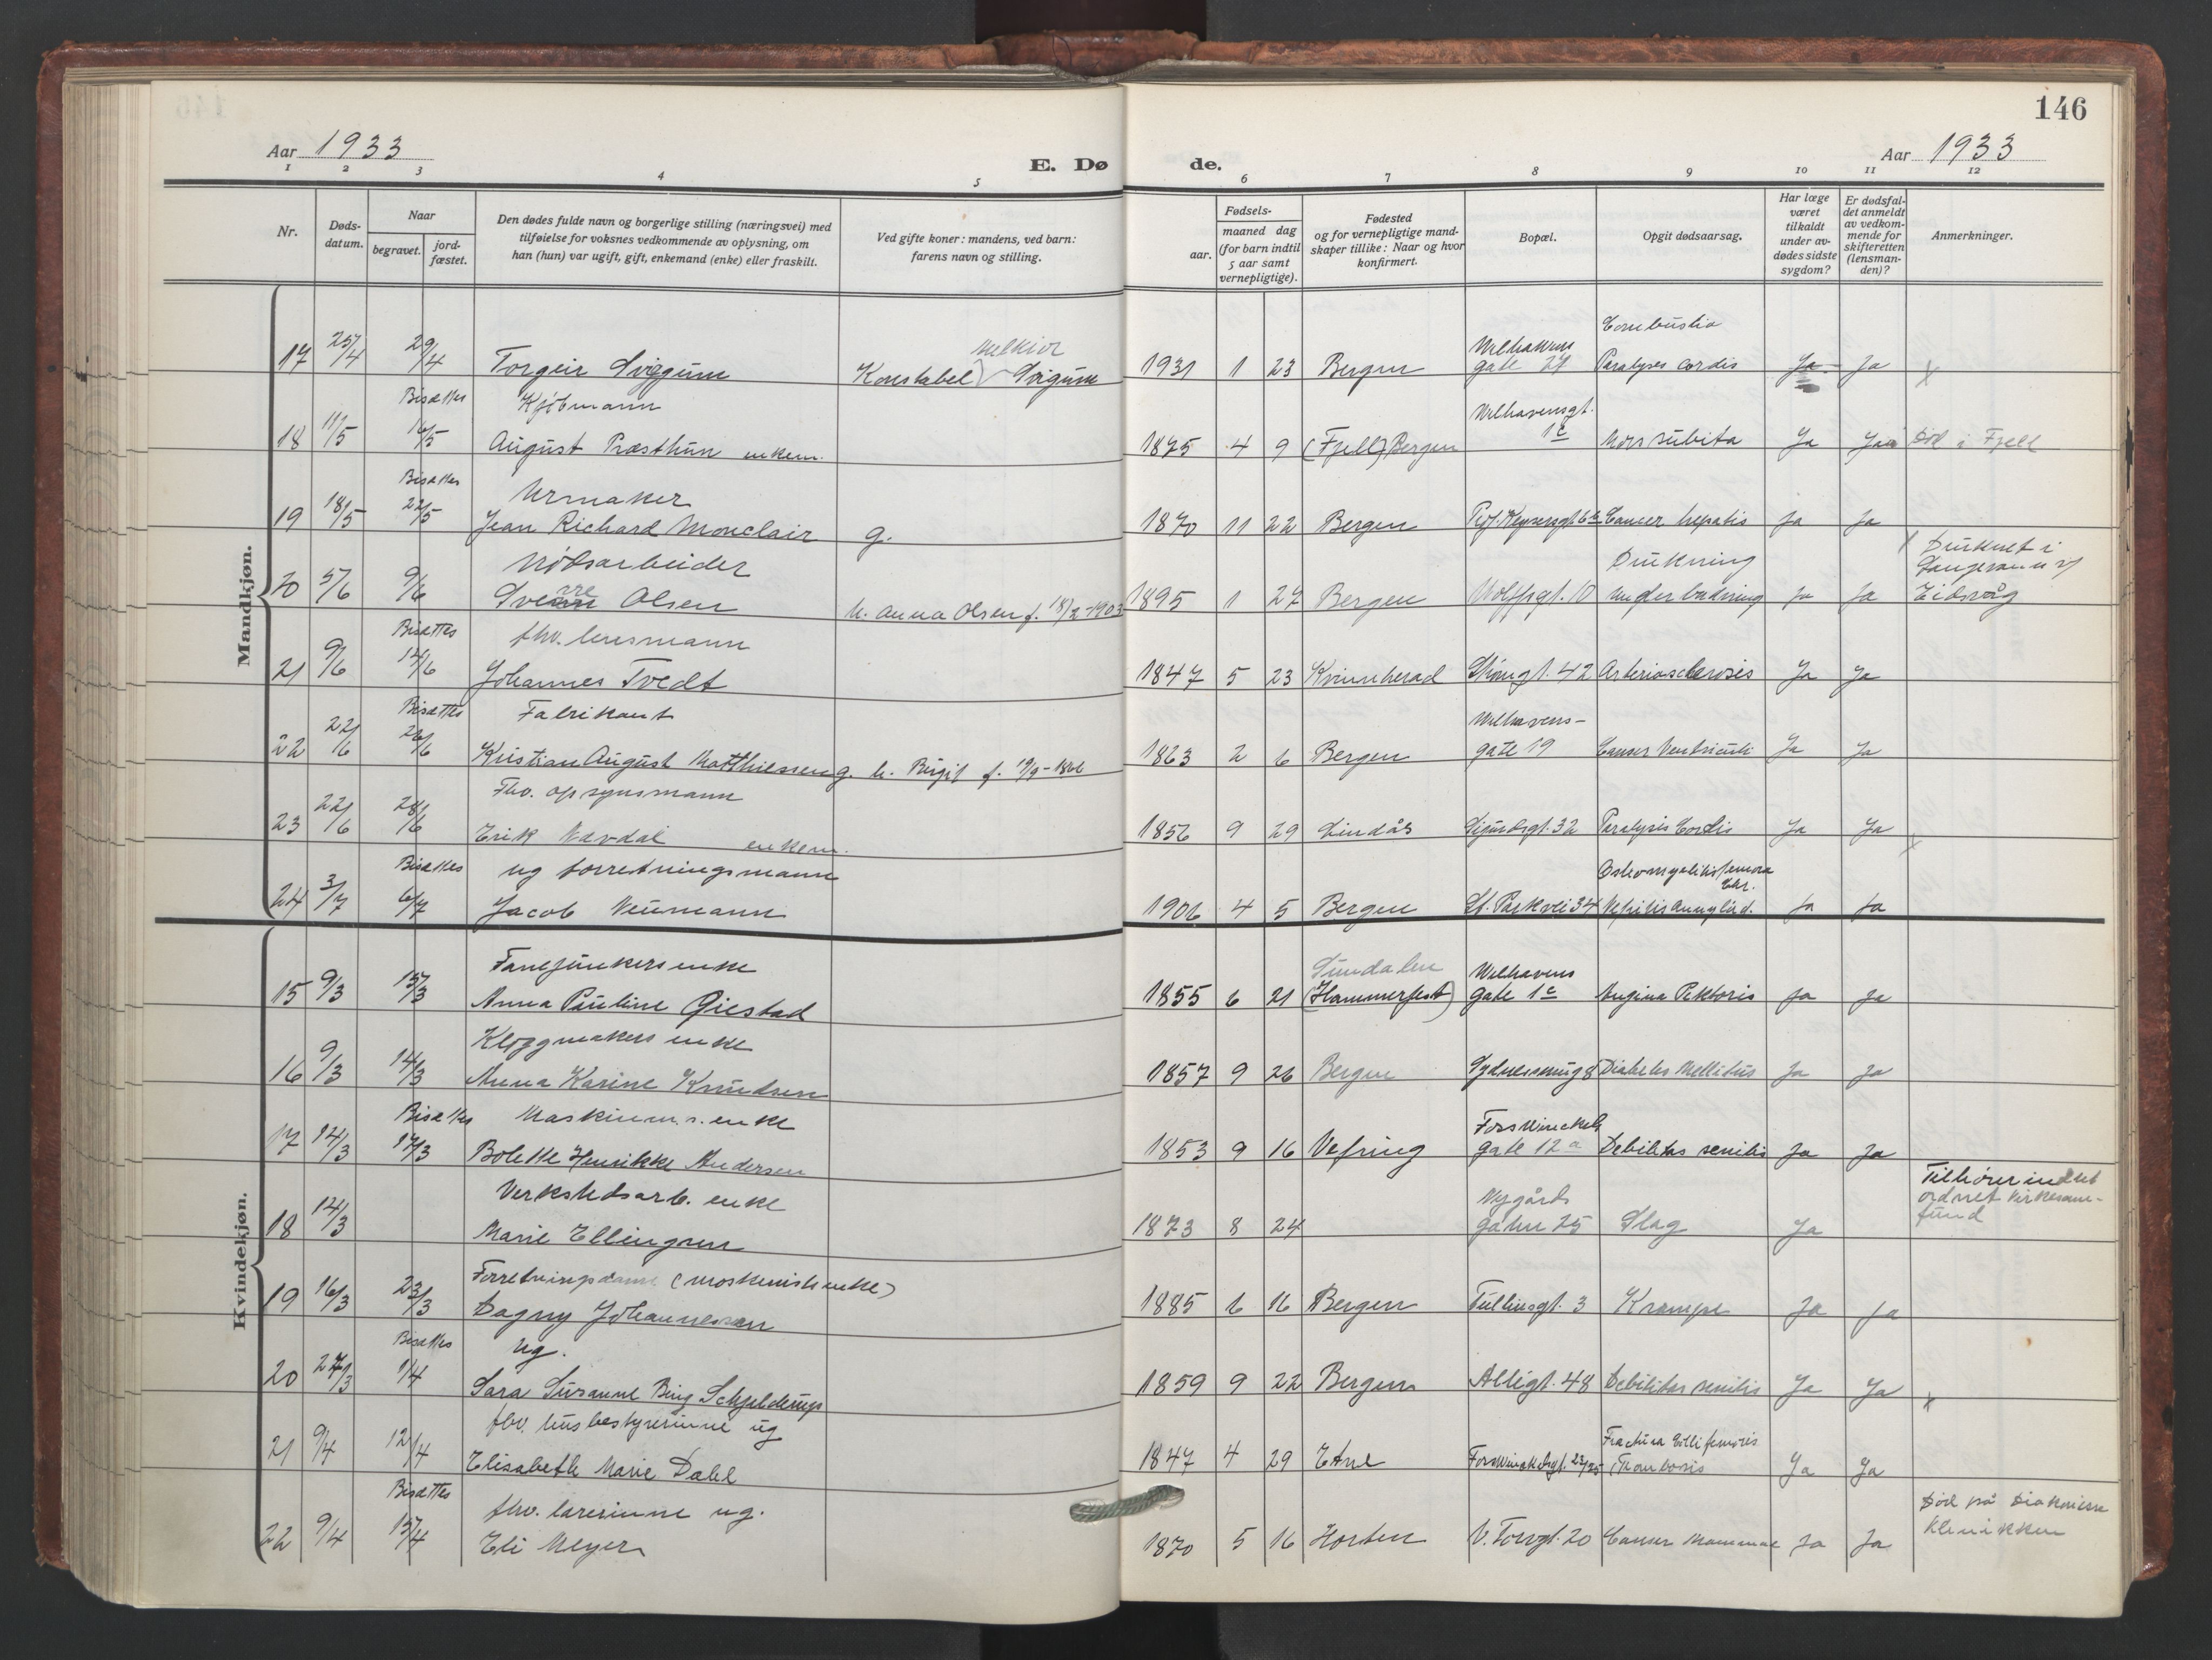 146
Aar 1933
E. Dø de.
Aar 1933
1 2 3 4 5 6 7 8 9 10 11 12
Nr.
Døds-
datum.
Naar
begravet.
jord-
fæstet.
Den dødes fulde navn og borgerlige stilling (næringsvei) med
tilføielse for voksnes vedkommende av oplysning, om
han (hun) var ugift, gift, enkemand (enke) eller fraskilt.
Ved gifte koner: mandens, ved barn:
farens navn og stilling.
Fødsels-
aar.
maaned dag
(for barn indtil
5 aar samt
vernepligtige).
Fødested
og for vernepligtige mand-
skaper tillike: Naar og hvor
konfirmert.
Bopæl.
Opgit dødsaarsag.
Har læge
været
tilkaldt
under av-
dødes sidste
sygdom?
Er dødsfal-
det anmeldt
av vedkom-
mende for
skifteretten
(lensman-
den)?
Anmerkninger.
Mandkjøn.
Melkior Combustio
17 25/4 29/4 Torgeir Sviggum Konstabel Svigum 1931 1 23 Bergen Welhavens gate 27 Paralyses cordis Ja Ja x
Bisættes Kjøbmann Welhavensgt.
18 11/5 16/5 August Præsthun enkem. 1875 4 9 (Fjell) Bergen 1c Mors subita Ja Ja Død i Fjell
Bisættes Urmaker
19 18/5 22/5 Jean Richard Monclair g. 1870 11 22 Bergen Prof. Keysersgt. 6b Cancer hepatis Ja Ja
Nødsarbeider Drukning Druknet i
20 5/6 9/6 Sverre Olsen h. Anna Olsen f. 18/2-1903 1895 1 27 Bergen Wolffsgt. 10 under badning Ja Ja Eidsvåg
Bisættes fhv. lensmann
21 9/6 14/6 Johannes Tvedt 1847 5 23 Kvinnherad Strømgt. 42 Arteriosclerosis Ja Ja
Bisættes Fabrikant Welhavens-
22 22/6 26/6 Kristian August Matthiessen g. h. Birgit f. 1863 2 6 Bergen gate 19 Cancer Ventriculi Ja Ja
Fhv. opsynsmann
23 22/6 28/6 Erik Nævdal enkem. 1856 9 29 Lindås Sigurdsgt. 32 Paralysis Cordis Ja Ja x
Bisættes ug forretningsmann Osteomyelitis femora Chr.
24 3/7 6/7 Jacob Neumann 1906 4 5 Bergen St. Parkvei 34 Ja Ja
Kvindekjøn.
Fanejunkers enke Sundalen Welhavens
15 9/3 15/3 Anna Pauline Giestad 1855 6 21 (Hammerfest) gate 1c Angina Pektoris Ja Ja
Kloggmakers enke
16 9/3 14/3 Anna Karine Knudsen 1857 9 26 Bergen Sydnessmug 8 Diabetes Mellitus Ja Ja
Bisættes Maskinm.s. enke Foswinckels
17 14/3 17/3 Bolette Henrikke Andersen 1853 9 16 Vefring gate 12a Debilitas senilis Ja Ja
Verkstedsarb. enke Nygårds Tilhører intet ordnet kirkesam-
18 14/3 Marie Ellingsen 1873 8 24 gaten 25 Slag Ja fund
Forretningsdame (maskinists enke)
19 16/3 23/3 Dagny Johannessen 1885 6 16 Bergen Tullinsgt. 3 Krampe Ja Ja
Bisættes ug.
20 27/3 1/4 Sara Susanne Bing Schjelderup 1859 9 22 Bergen Allégt. 48 Debilitas senilis Ja Ja x
fhv. husbestyrerinne ug Fractura Colli femoris
21 9/4 12/4 Elisabeth Marie Dahl 1847 4 29 Etne Foswinckelsgt. 23/25 (Trombosis Ja Ja
Bisættes fhv. lærerinne ug. Død på Diakonisse
22 9/4 15/4 Eli Meyer 1870 5 16 Horten V. Torvgt. 20 Cancer Mammae Ja Ja klinikken